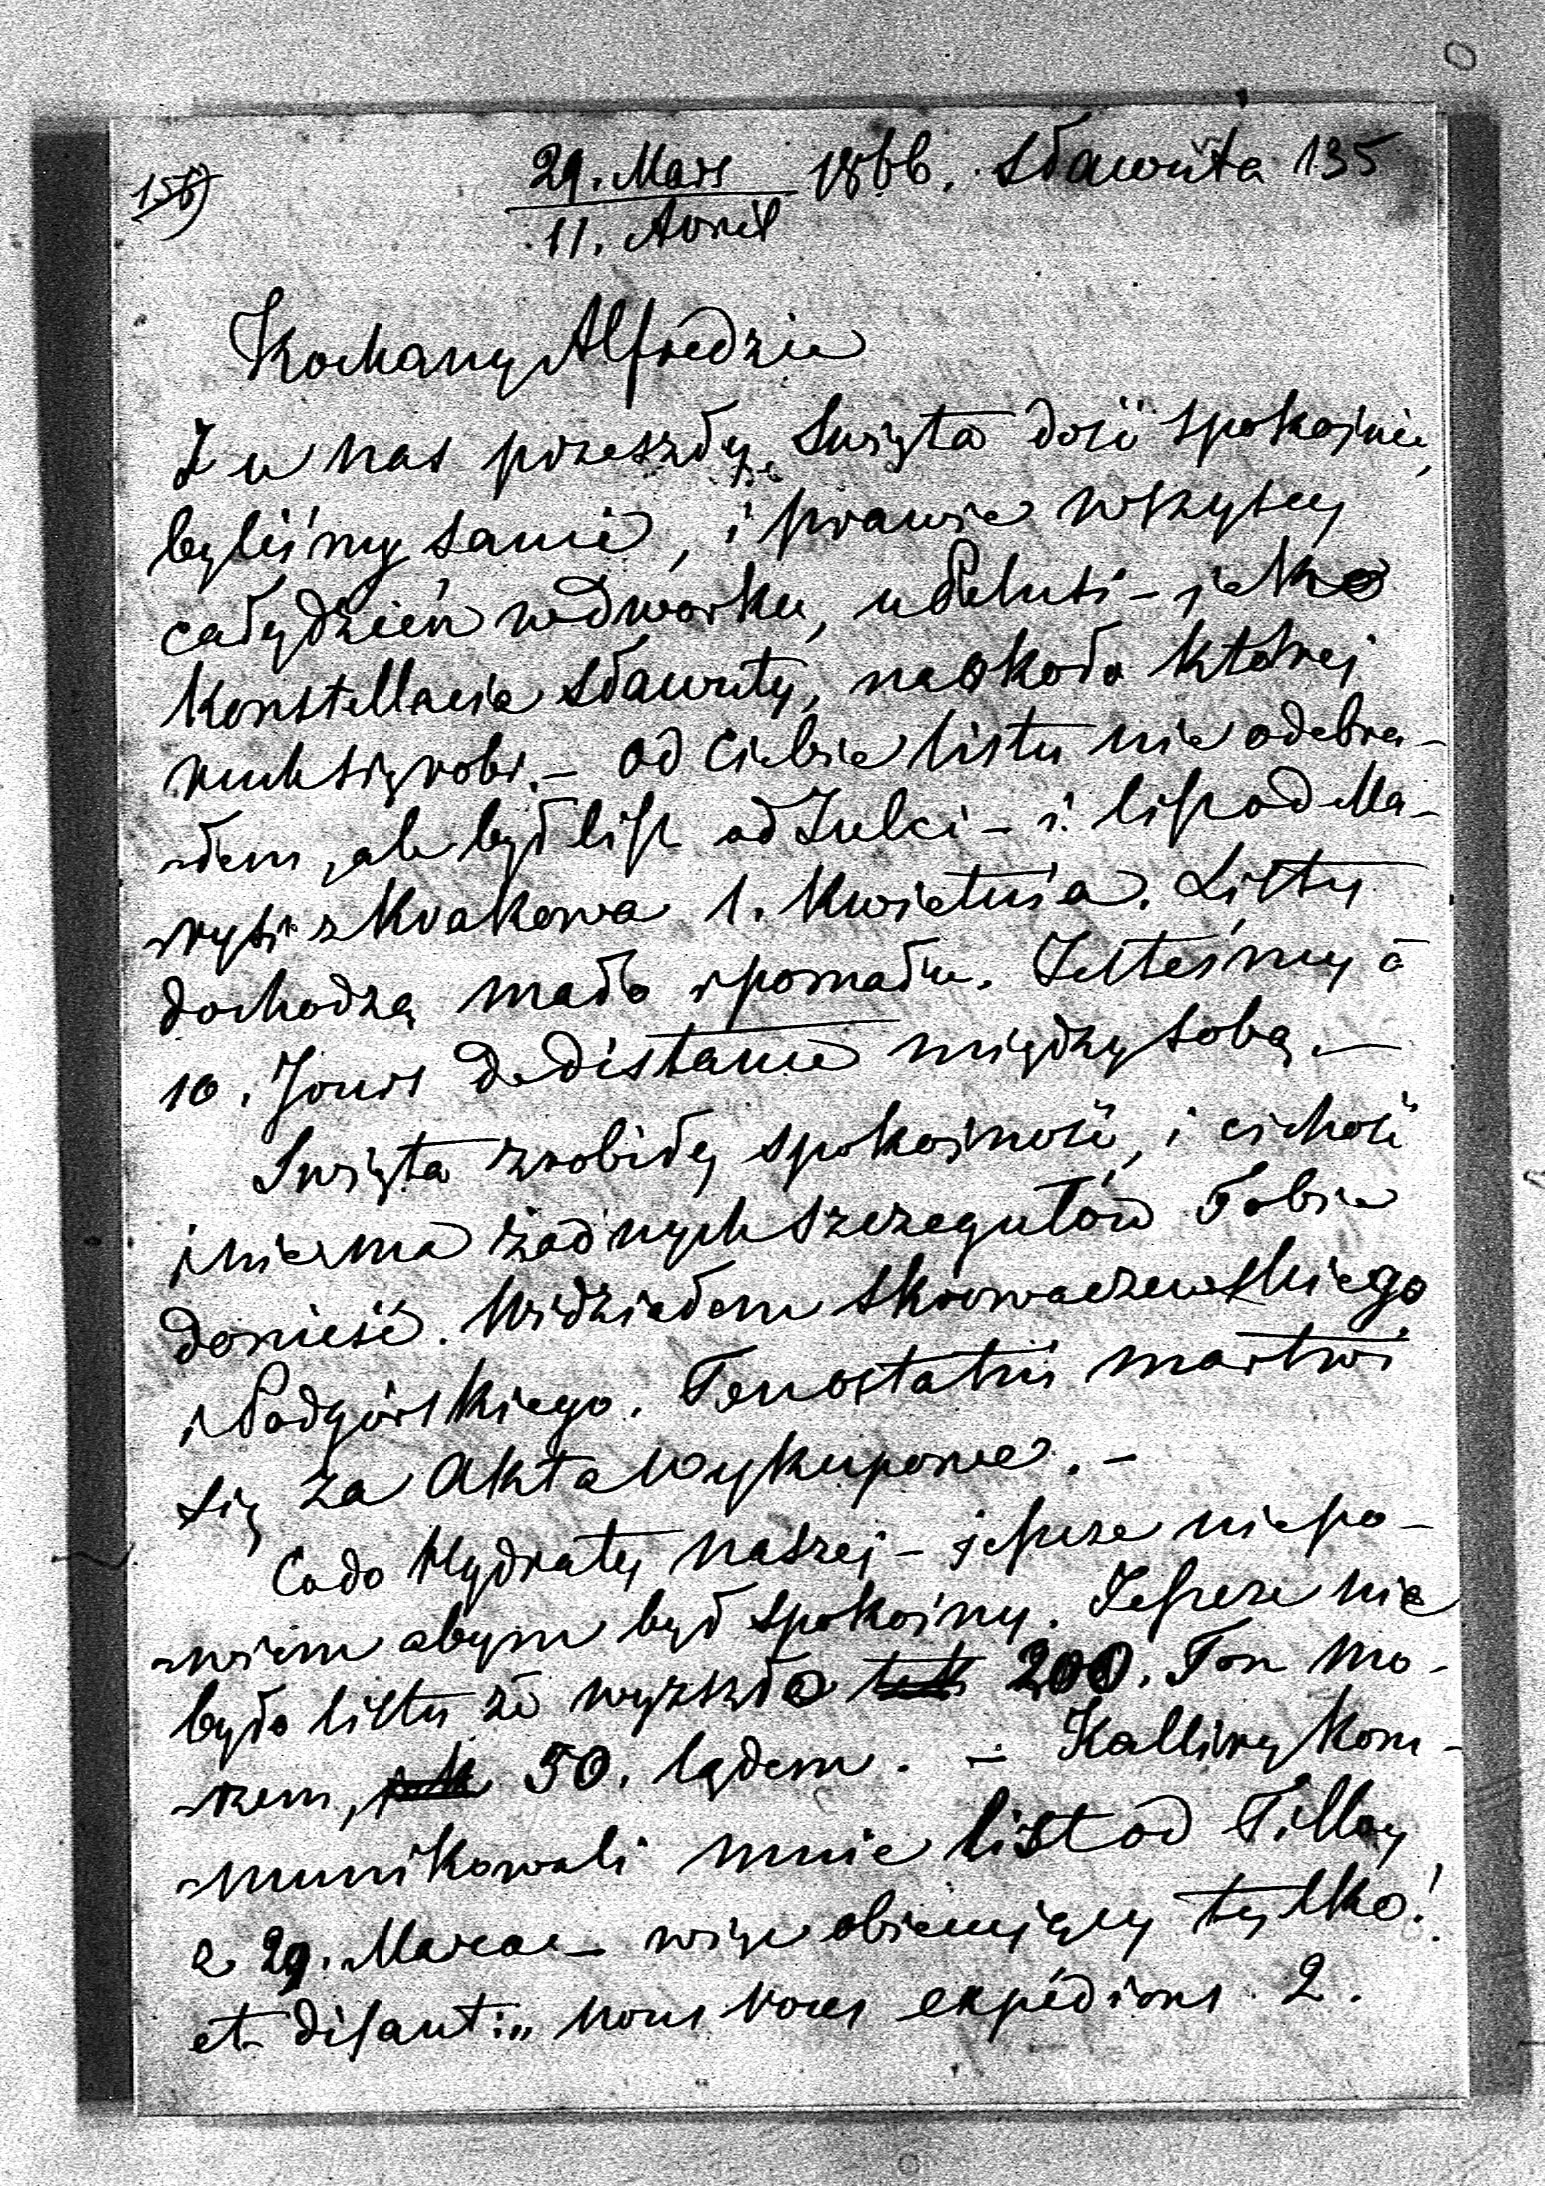 156)
29. Mars 1866. Sławuta 135
11. Avril
Kochany Alfredzie
I u nas przeszły Święta dość spokojnie,
byliśmy sami, i prawie wszyscy
cały dzień w dworku, u Pelusi – jako
Konstellacia Sławuty, naokoło której
ruch się robi. – Od Ciebie listu nie odebra-
-łem, ale był list od Julci – i list od Ma-
-rysi z Krakowa 1. Kwietnia. Listy
dochodzą mało i pomału. Jesteśmy à
10. Jours de distance między sobą. –
Święta zrobiły spokojność, i cichość
i niema żadnych szczegułów Tobie
donieść. Widziałem Skorwaczewskiego
i Podgórskiego. Ten ostatni martwi
się za Akta Wykupowe. –
Co do Hydraty naszej – jeszcze niepo-
-wiem abym był spokojny. Jeszcze nie
było listu że wyszło 200. Ton mo-
-rzem, 50. lądem. – Kalliny kom-
-munikowali mnie list od Tilloy
z 29. Marca – więc obiecujący tylko!
et disant: „ nous vous expédions 2.